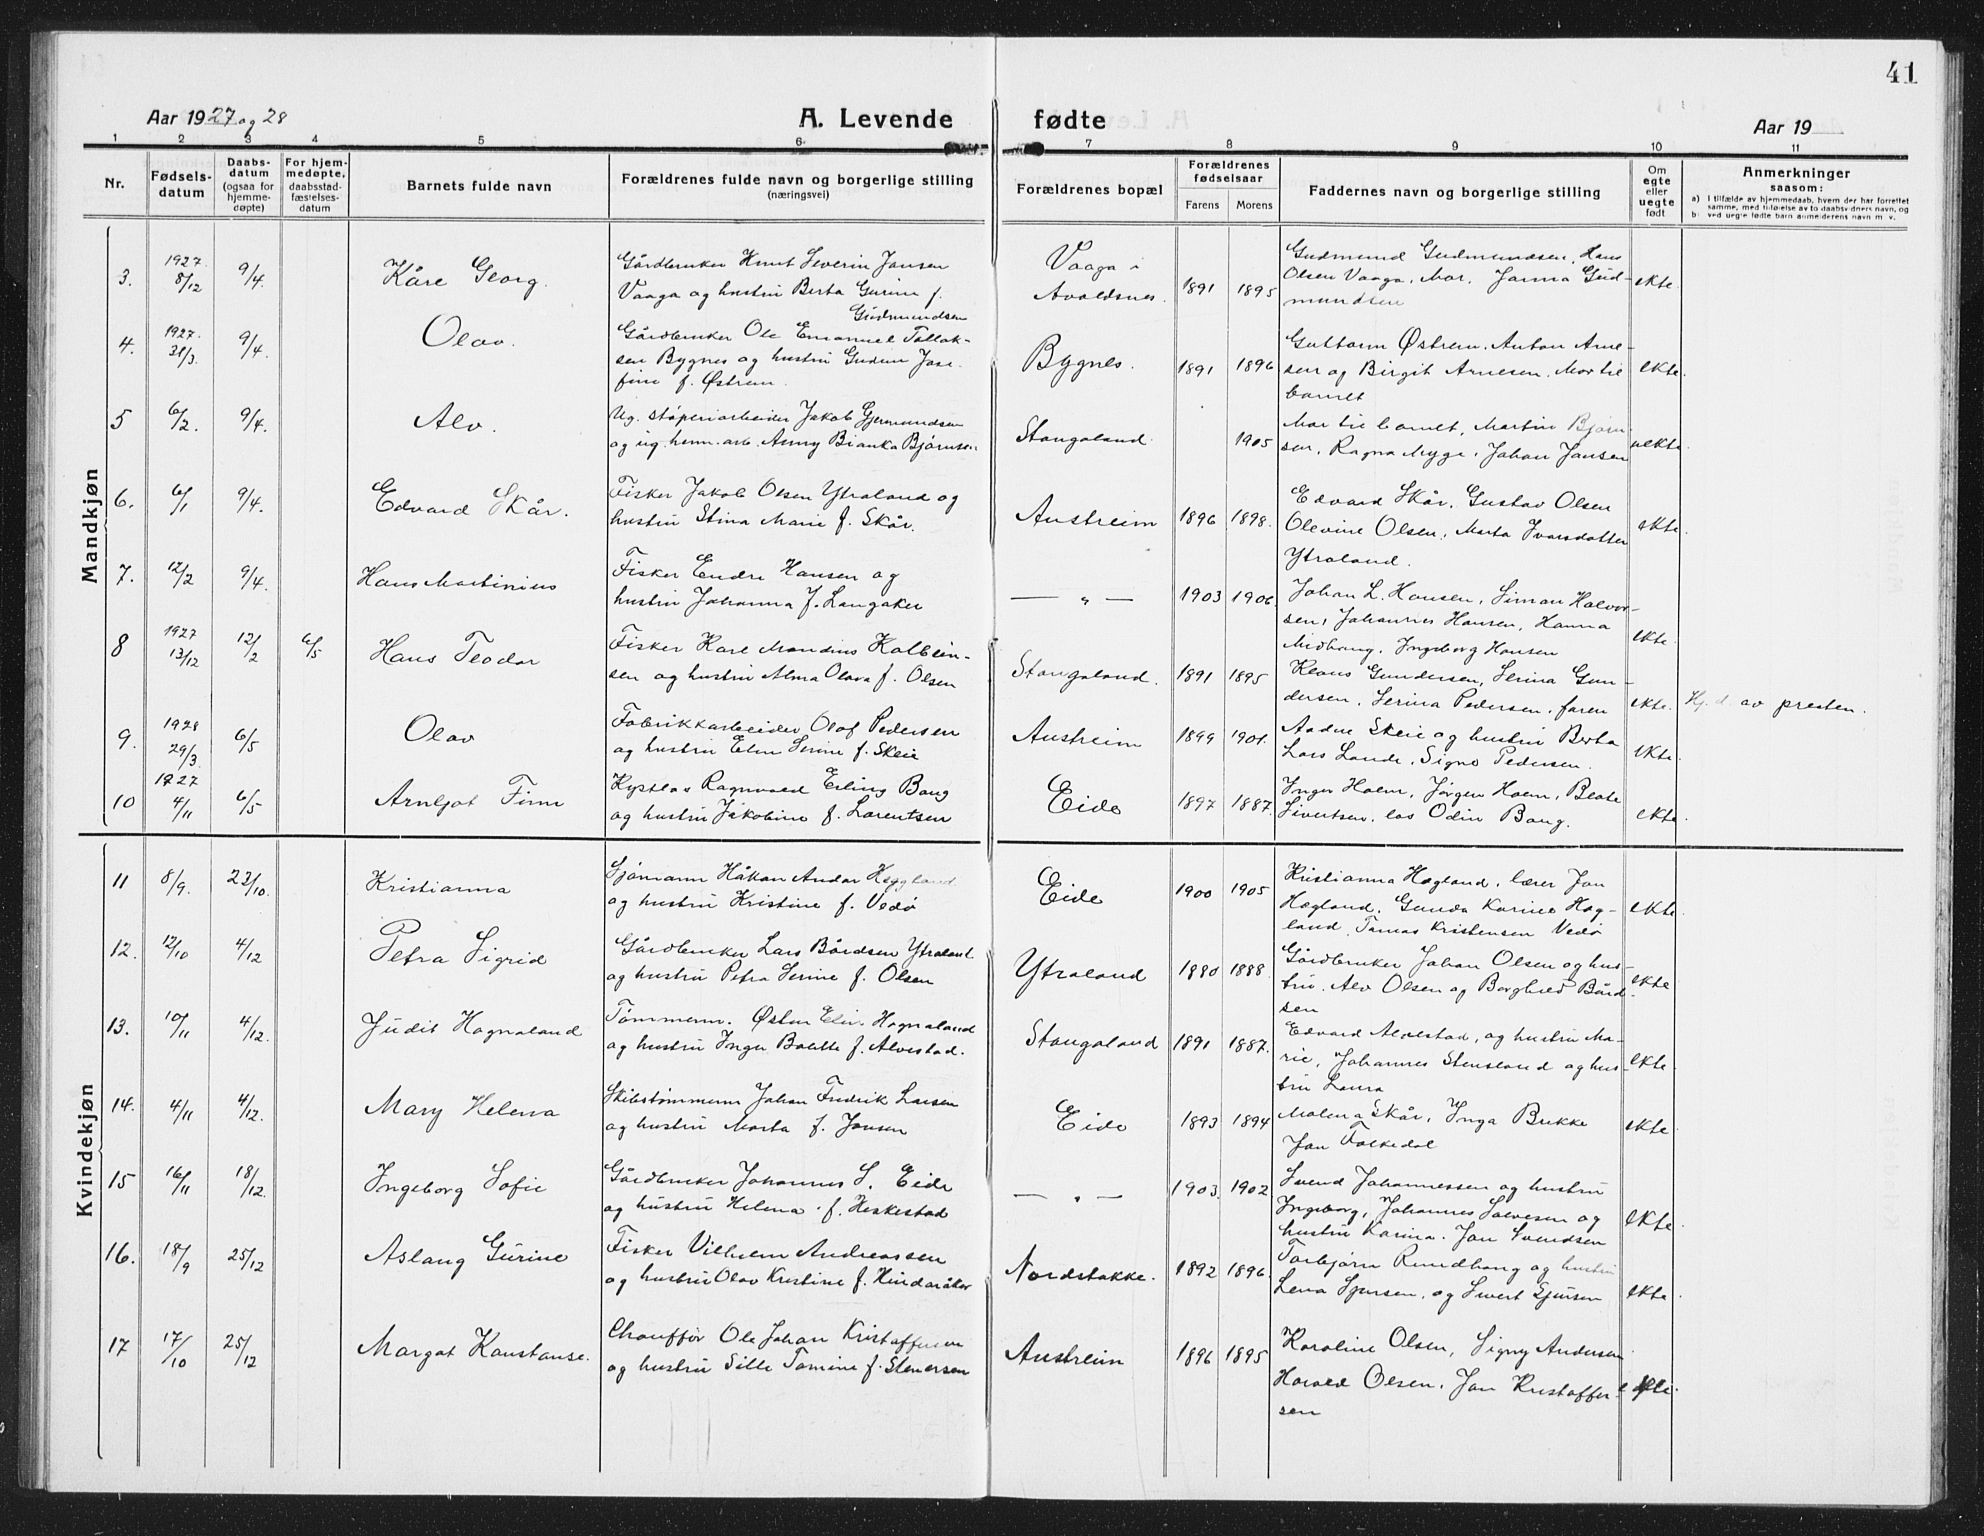 41
Aar 1927 og 28
A. Levende fødte
Aar 19
1 2 3 4 5 6 7 8 9 10 11
Nr.
Fødsels-
datum
Daabs-
datum
(ogsaa for
hjemme-
døpte)
For hjem-
medøpte,
daabsstad-
fæstelses-
datum
Barnets fulde navn
Forældrenes fulde navn og borgerlige stilling
(næringsvei)
Forældrenes bopæl
Forældrenes
fødselsaar
Farens Morens
Faddernes navn og borgerlige stilling
Om
egte
eller
uegte
født
Anmerkninger
saasom:
a) I tilfælde av hjemmedaab, hvem der har forrettet
samme, med tilføielse av to daabsvidners navn, og
b) ved uegte fødte barn anmelderens navn m. v.
Mandkjøn
3. 1927 8/12 9/4. Kåre Georg.
Gårdbruker Knut Severin Jansen
Vaaga og hustru Berta Gurine f.
Gudmundsen
Vaaga i
Avaldsnes. 1891 1895
Gudmund Gudmundsen, Hans
Olsen Vaaga, Mor, Janna Gud-
mundsen
ekte.
4. 1927. 31/3. 9/4. Olav.
Gårdbruker Ole Emanuel Tollak-
sen Bygnes og hustru Gudrun Jose-
fine f. Østrem.
Bygnes. 1891 1896
Guttorm Østrem. Anton Arne-
sen og Birgit Arnesen. Mor til
barnet
ekte.
5 6/2. 9/4. Alv.
Ug. støperiarbeider Jakob Gjermundsen
og ug. herm. arb. Anny Bianka Bjørnsen
Stangaland. 1905
Mor til barnet, Martin Bjørn-
sen, Ragna Myge, Johan Jansen
uekte
6. 6/1 9/4. Edvard Skår.
Fisker Jakob Olsen Ytraland og
hustru Stina Marie f. Skår.
Austreim 1896 1898.
Edvard Skår, Gustav Olsen
Olevine Olsen, Marta Ivarsdatter
Ytraland.
ekte
7. 12/2 9/4. Hans Martinius
Fisker Endre Hansen og
hustru Johanna f. Langaker
— „ — 1903 1906.
Johan L. Hansen, Simon Halvor-
sen, Johannes Hansen, Hanna
Midhaug, Ingeborg Hansen
ekte.
8 1927 13/12 12/2 6/5 Hans Teodor
Fisker Kare Mandius Kolbein-
sen og hustru Alma Olava f. Olsen
Stangaland. 1891 1895
Klaus Gundersen, Serina Gun-
dersen, Serina Pedersen, faren
ekte. Hj. d. av presten.
9. 1928 29/3. 6/5 Olav
Fabrikkarbeider Olaf Pedersen
og hustru Elen Serine f. Skeie
Austreim 1899 1901.
Aadne Skeie og hustru Berta
Lars Lande, Signe Pedersen.
ekte.
10 1927 4/11 6/5 Arnljot Finn
Kystlos Ragnvald Erling Bang
og hustru Jakobine f. Larentsen
Eide 1897 1887.
Inger Holm, Jørgen Holm, Beate
Sivertsen, los Odin Bang.
ekte.
Kvindekjøn
11 8/9. 23/10. Kristianna
Sjømann Håkon Andor Hegland
og hustru Kristine f. Vedø
Eide 1900 1905
Kristianna Hegland, lærer Jan
Hegland, Gunda Karine Heg-
land, Tomas Kristensen Vedø
ekte.
12. 12/10 4/12 Petra Sigrid
Gårdbruker Lars Bårdsen Ytraland
og hustru Petra Serine f. Olsen
Ytraland 1880 1888
Gårdbruker Johan Olsen og hus-
tru. Alv Olsen og Borghild Bård-
sen
ekte
13. 10/11 4/12. Judit Hagnaland
Tømmerm. Østen Hagnaland
og hustru Inger Bolette f. Alvestad.
Stangaland 1891 1887.
Edvard Alvestad, og hustru Ma-
rie, Johannes Stensland og hus-
tru Laura
ekte.
14. 4/11 4/12. Mary Helena
Skibstømmerm Johan Fredrik Larsen
og hustru Marta f. Jansen
Eide 1893 1894
Malena Skår, Inga Brekke
Jan Falkedal
ekte.
15 16/11 18/12. Ingeborg Sofie
Gårdbruker Johannes S. Eide
og hustru Helena f. Heskestad
— „ — 1903. 1902
Svend Johannessen og hustru
Ingeborg, Johannes Salvesen og
hustru Karina. Jan Svendsen
ekte.
16. 18/9 25/12 Aslaug Gurine
Fisker Vilhelm Andreassen
og hustru Olav Kristine f. Hindaråker
Nordstokke. 1892 1896.
Torbjørn Rundhaug og hustru
Lena Sjursen, og Sivert Sjursen
ekte.
17 17/10 25/12 Margot Konstanse.
Chauffør Ole Johan Kristoffersen
og hustru Sille Tomine f. Stenersen
Austreim 1896 1895
Karoline Olsen, Signy Andersen
Harald Olsen, Jan Kristoffer-
sen
ekte.